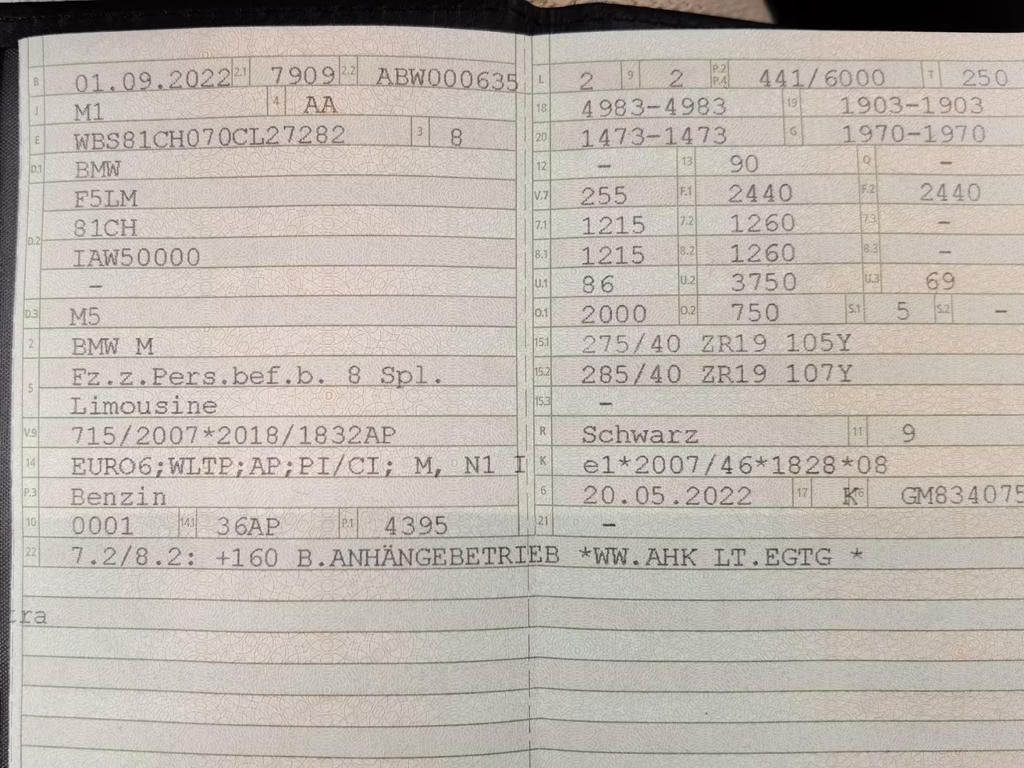 B 01.09.2022 2.1 7909 2.2 ABW000635
J M1 4 AA
E WBS81CH070CL27282 3 8
D.1 BMW
F5LM
81CH
D.2 IAW50000
–
D.3 M5
2 BMW M
Fz.z.Pers.bef.b. 8 Spl.
5 Limousine
V.9 715/2007*2018/1832AP
14 EURO6;WLTP;AP;PI/CI; M, N1 I
P.3 Benzin
10 0001 14.1 36AP P.1 4395
L 2 9 2 P.2 P.4 441/6000 T 250
18 4983-4983 19 1903-1903
20 1473-1473 G 1970-1970
12 – 13 90 Q –
V.7 255 F.1 2440 F.2 2440
7.1 1215 7.2 1260 7.3 –
8.1 1215 8.2 1260 8.3 –
U.1 86 U.2 3750 U.3 69
O.1 2000 O.2 750 S.1 5 S.2 –
15.1 275/40 ZR19 105Y
15.2 285/40 ZR19 107Y
15.3 –
R Schwarz 11 9
K e1*2007/46*1828*08
6 20.05.2022 17 K 16 GM834075
21 –
22 7.2/8.2: +160 B.ANHÄNGEBETRIEB *WW.AHK LT.EGTG *
tra